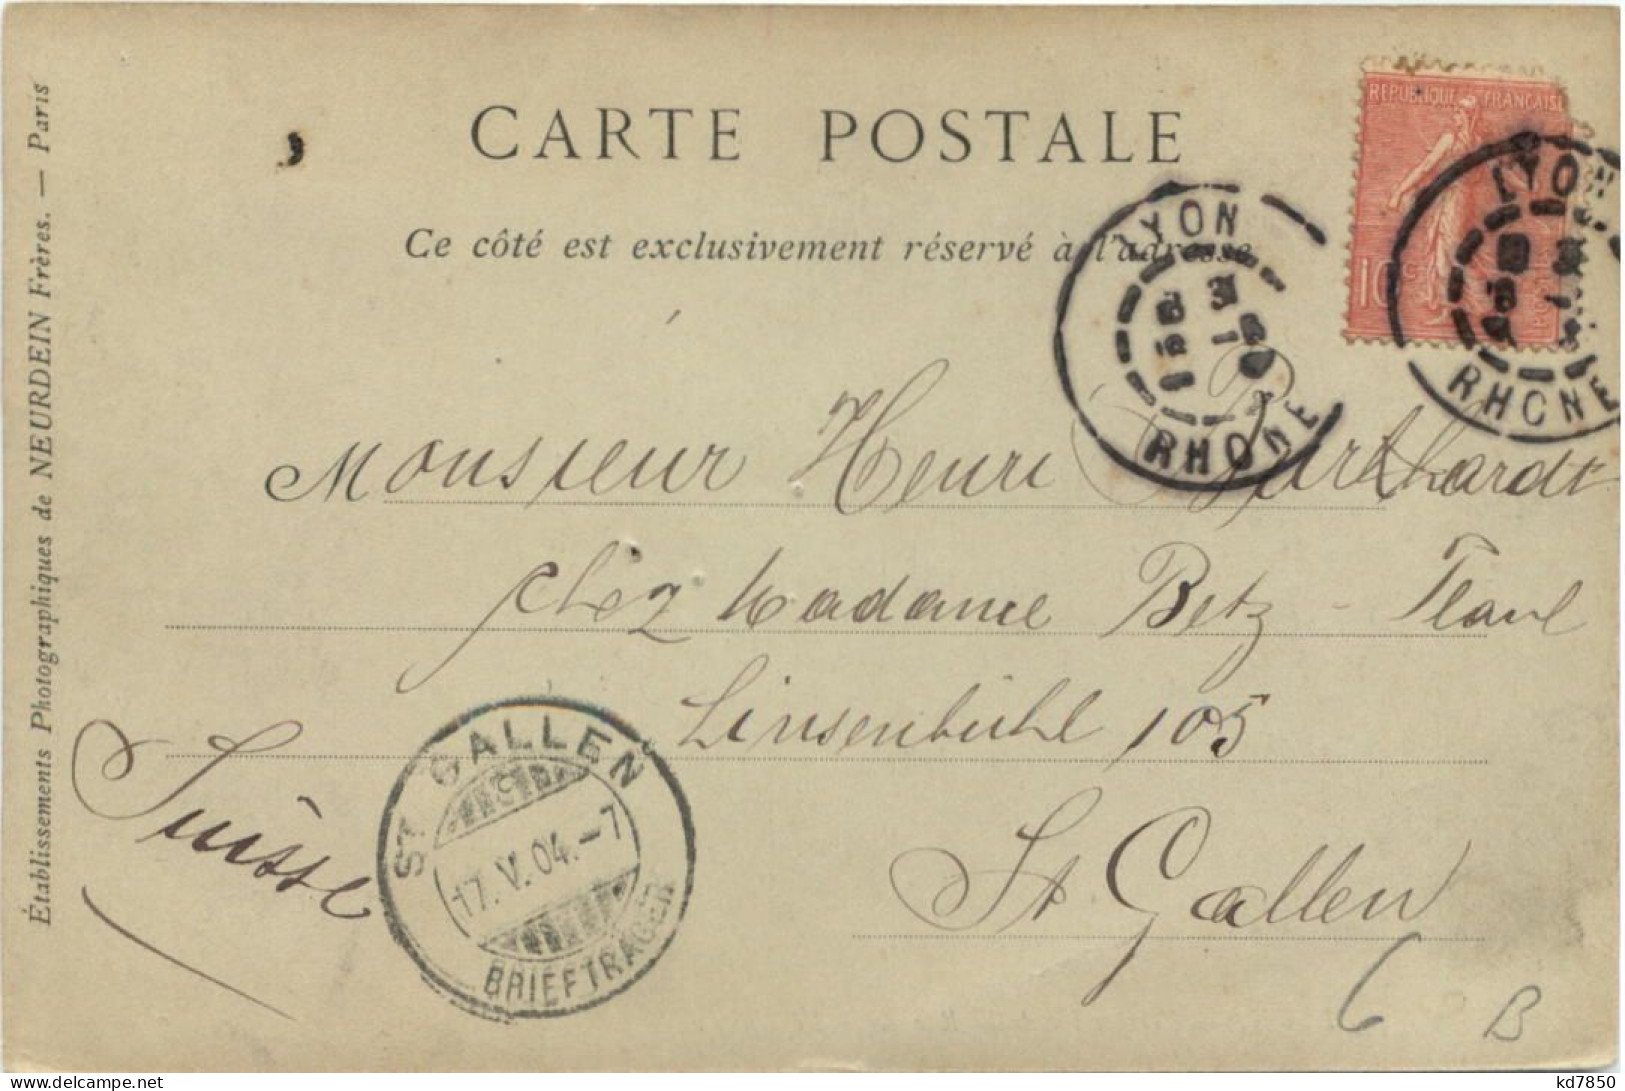 CARTE POSTALE
Ce côté est exclusivement réservé à l'adresse
Établissements Photographiques de NEURDEIN Frères. — Paris
REPUBLIQUE FRANÇAISE
10 c
LYON
RHONE
LYON
RHONE
Monsieur Henri Burkhardt
chez Madame Betz -
Linsenbühl 105
St Gallen
Suisse
ST GALLEN
17.V.04.-7
BRIEFTRÄGER
6
B
kd7850